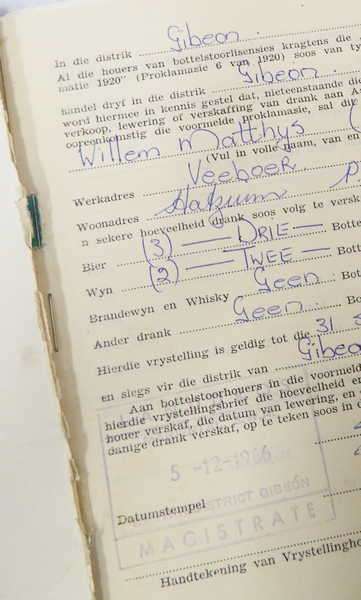 In die distrik Gibeon
Al die houers van bottelstoorlisensies kragtens die
matie 1920" (Proklamasie 6 van 1920) soos van ty
handel dryf in die distrik Gibeon
word hiermee in kennis gestel dat, nieteenstaande
verkoop, lewering of verskaffing van drank aan A
ooreenkomstig die voormelde proklamasie, sal dit
Willem Matthys
(Vul in volle naam, van en
Werkadres Veeboer
Woonadres Hakum P
n sekere hoeveelheid drank soos volg te versk
Bier (3) — DRIE — Botte
Wyn (2) — TWEE — Bott
Brandewyn en Whisky Geen Bot
Ander drank Geen Bo
Hierdie vrystelling is geldig tot die 31
en slegs vir die distrik van Gibeon
Aan bottelstoorhouers in die voormeld
hierdie vrystellingsbrief die hoeveelheid e
houer verskaf, die datum van lewering, en
danige drank verskaf, op te teken soos in
5 -12-1966
Datumstempel
DISTRICT GIBEON
MAGISTRATE
Handtekening van Vrystellingho